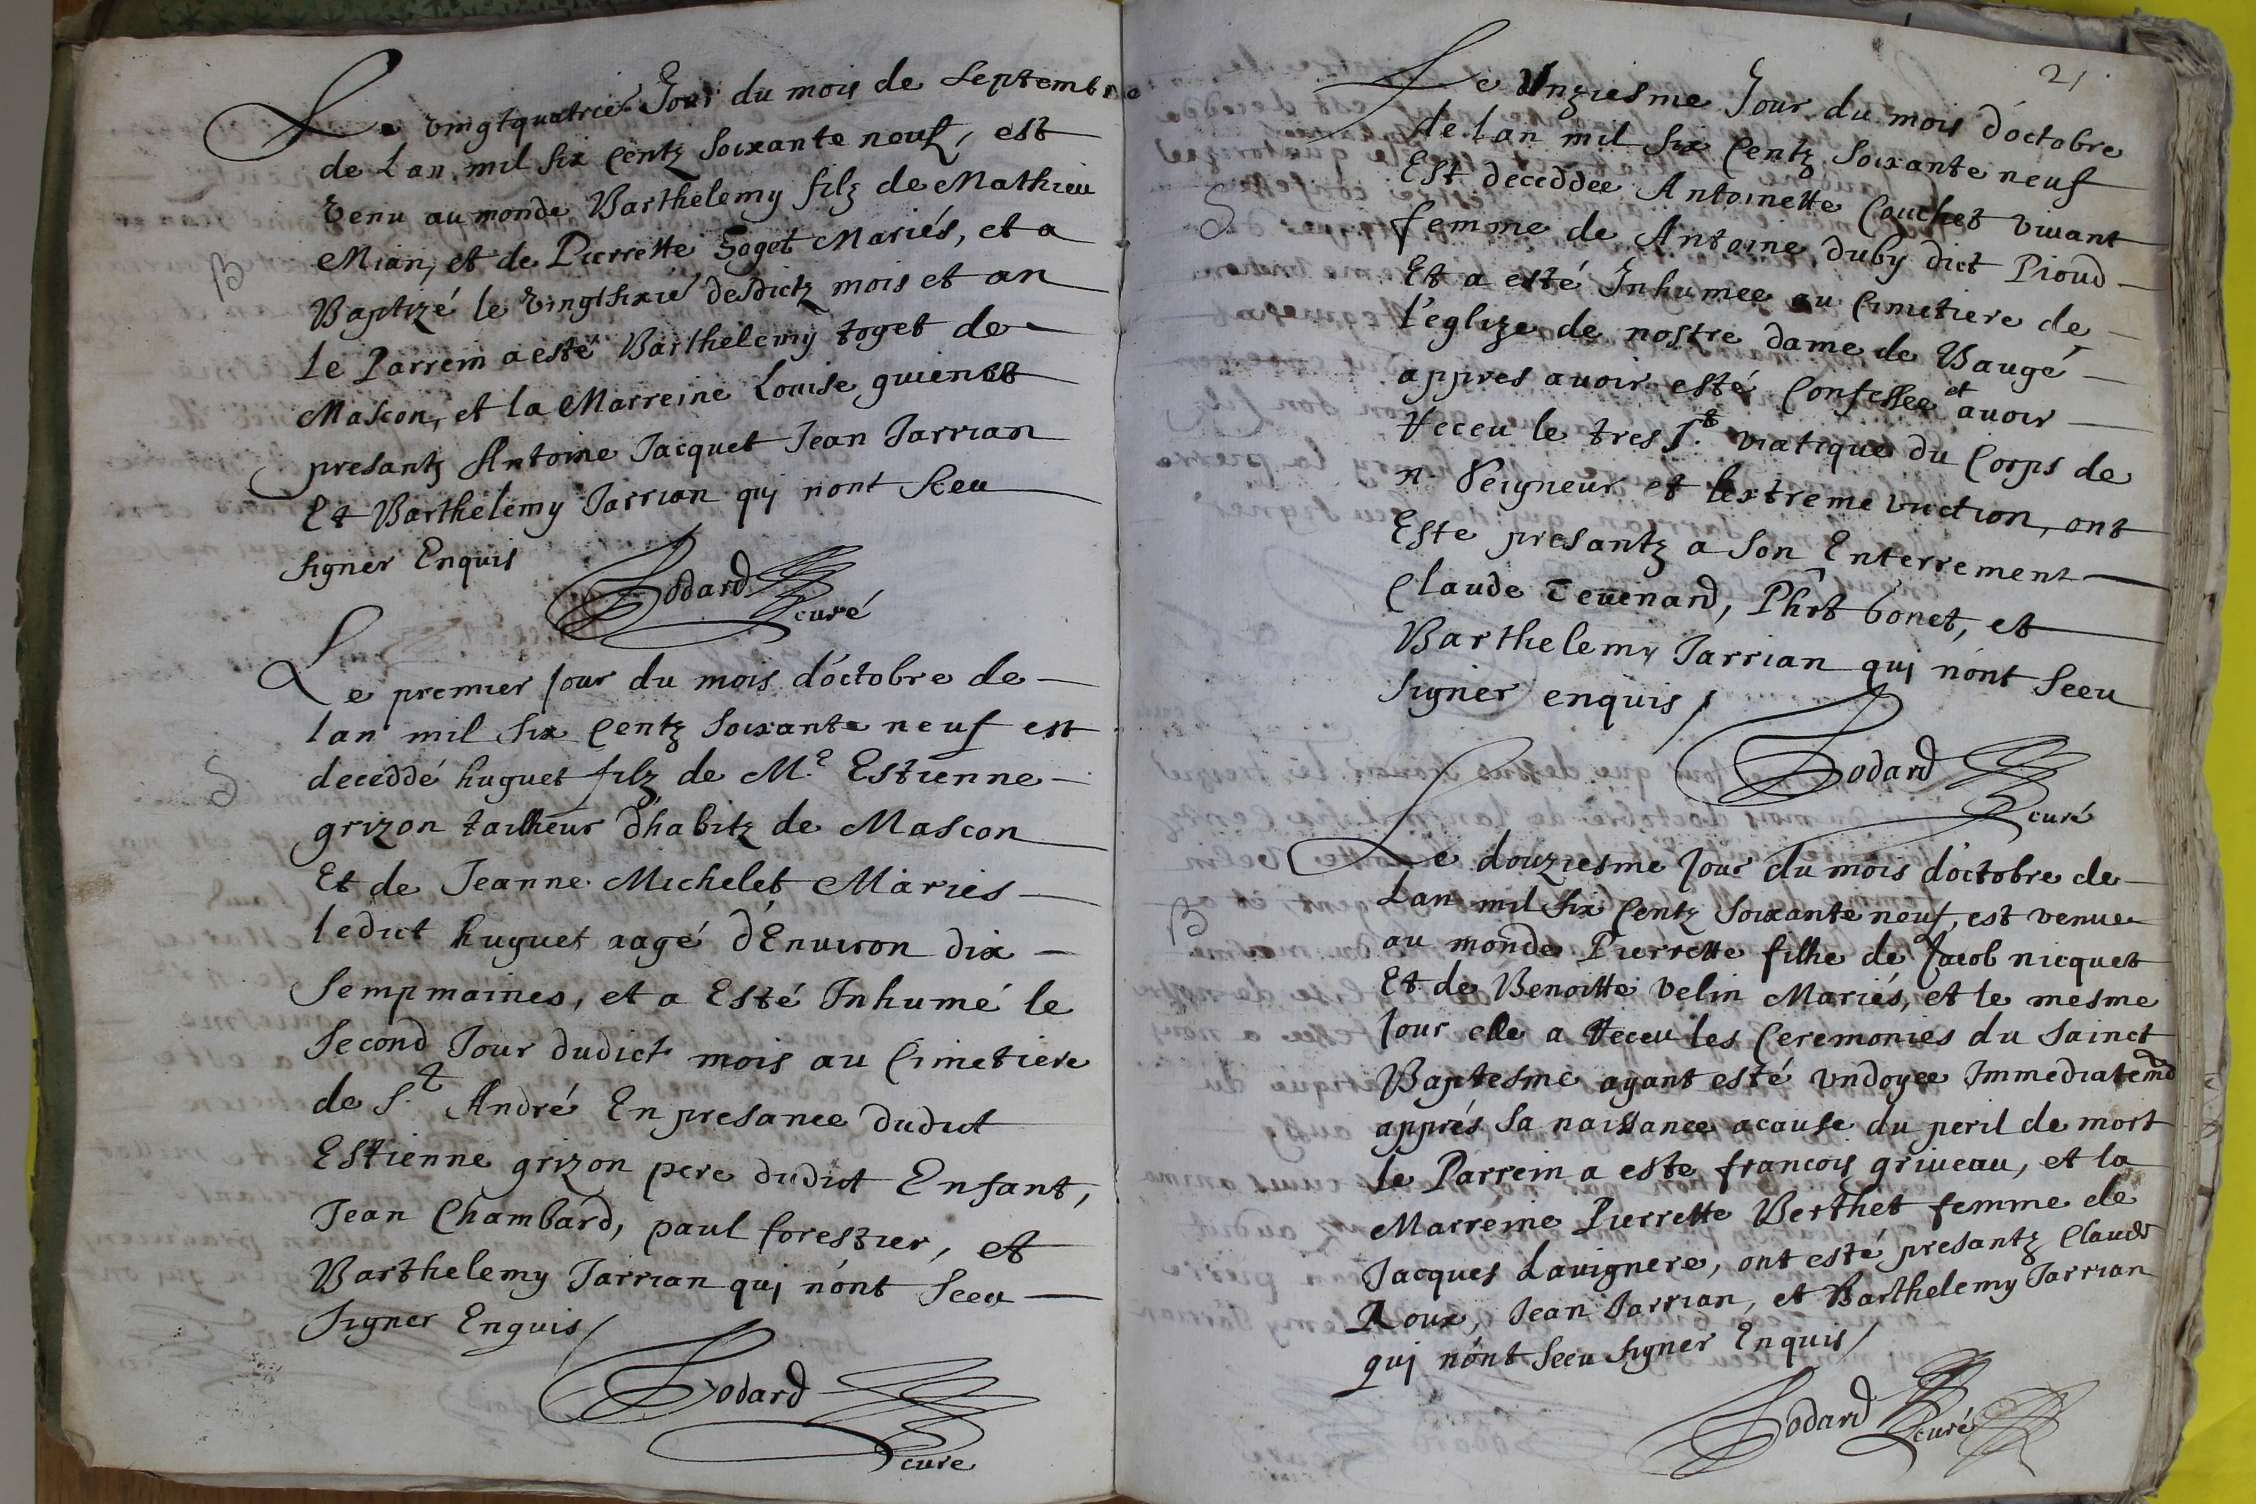 Le vingtquatrie Jour du mois de Septembre
de Lan mil six Centz Soixante neuf, est
venu au monde Barthelemy filz de Mathieu
Mian, et de Pierrette Goget Mariés, et a
B
Baptizé le vingtsixié desdictz mois et an
le Parrein a esté Barthelemy toget de
Mascon, et la Marreine Louise guienot
presantz Antoine Jacquet Jean Jarrian
Et Barthelemy Jarrian qui nont Sceu
signer Enquis
Godard
curé
Le premier Jour du mois d'octobre de
lan mil six Centz Soixante neuf est
S
deceddé huguet filz de M.e Estienne
grizon tailheur d'habitz de Mascon
Et de Jeanne Michelet Mariés
ledict huguet aagé d'Enuiron dix
Sempmaines, et a Esté Inhumé le
Second Jour dudict mois au Cimetiere
de S.t André En presance dudict
Estienne grizon pere dudict Enfant,
Jean Chambard, paul forestier, et
Barthelemy Jarrian qui n'ont Sceu
signer Enquis/
Godard
cure
21
Le Unziesme Jour du mois d'octobre
de lan mil Six Centz Soixante neuf
S
Est deceddee Antoinette Couchet viuant
femme de Antoine duby dict Pioud
Et a esté Inhumee au Cimetiere de
l'eglize de nostre dame de Baugé
appres auoir esté Confessee et auoir
Receu le tres S.t viatique du Corps de
n. Seigneur et lextreme vnction, ont
Este presantz a Son Enterrement
Claude Teuenard, Phrt bonet, et
Barthelemy Jarrian qui n'ont Sceu
signer enquis/
Godard
curé
Le douziesme Jour du mois d'octobre de
B
Lan mil six Centz Soixante neuf, est venue
au monde Pierrette filhe de Jacob nicquet
Et de Benoitte velin Mariés, et le mesme
Jour elle a Receu les Ceremonies du Sainct
Baptesme ayant esté vndoyee Immediatemt
apprés Sa naissance acause du peril de mort
le Parrein a este francois griueau, et la
Marreine Pierrette Berthet femme de
Jacques Lauignere, ont esté presantz Claude
Roux, Jean Jarrian, et Barthelemy Jarrian
qui n'ont Sceu signer Enquis/
Godard
curé